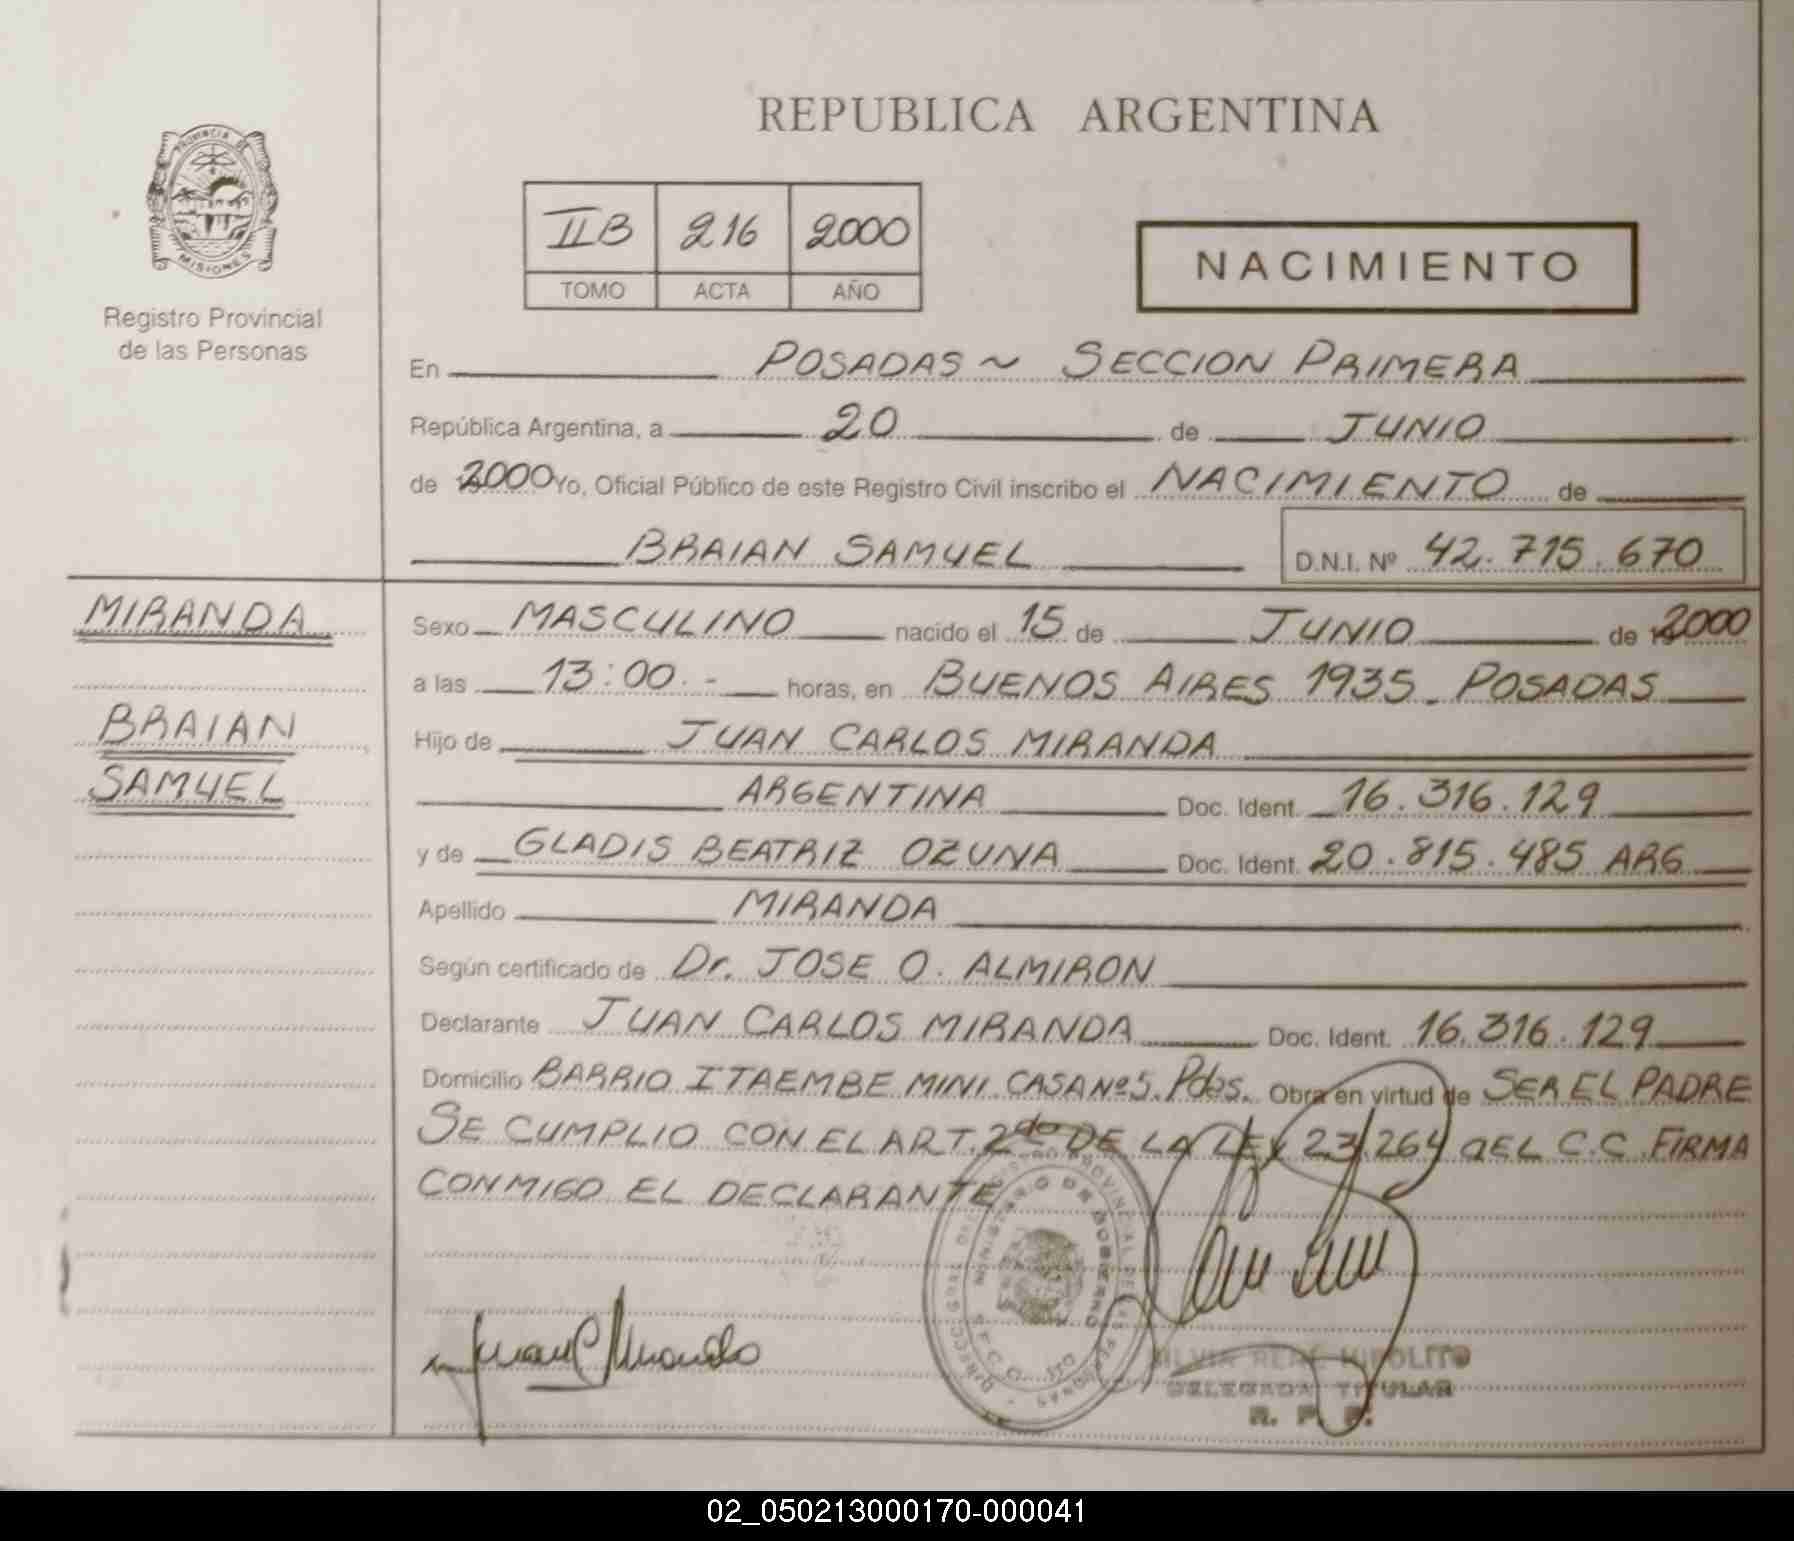 REPUBLICA ARGENTINA
PROVINCIA DE
MISIONES
Registro Provincial
de las Personas
IIB 216 2000
TOMO ACTA AÑO
NACIMIENTO
En POSADAS ~ SECCION PRIMERA
República Argentina, a 20 de JUNIO
de 2000 Yo, Oficial Público de este Registro Civil inscribo el NACIMIENTO de
BRAIAN SAMUEL D.N.I. Nº 42.715.670
MIRANDA
BRAIAN
SAMUEL
Sexo MASCULINO nacido el 15 de JUNIO de 2000
a las 13:00.- horas, en BUENOS AIRES 1935_ POSADAS
Hijo de JUAN CARLOS MIRANDA
ARGENTINA Doc. Ident. 16.316.129
y de GLADIS BEATRIZ OZUNA Doc. Ident. 20.815.485 ARG
Apellido MIRANDA
Según certificado de Dr. JOSE O. ALMIRON
Declarante JUAN CARLOS MIRANDA Doc. Ident. 16.316.129
Domicilio BARRIO ITAEMBE MINI CASA Nº 5. Pdas. Obra en virtud de SER EL PADRE
SE CUMPLIO CON EL ART. 2do DE LA LEY 23.264 DEL C.C. FIRMA
CONMIGO EL DECLARANTE
MINISTERIO DE GOBIERNO
Juan C Miranda
SILVIA RENE HIPOLITO
DELEGADA TITULAR
R. P. P.
02_050213000170-000041